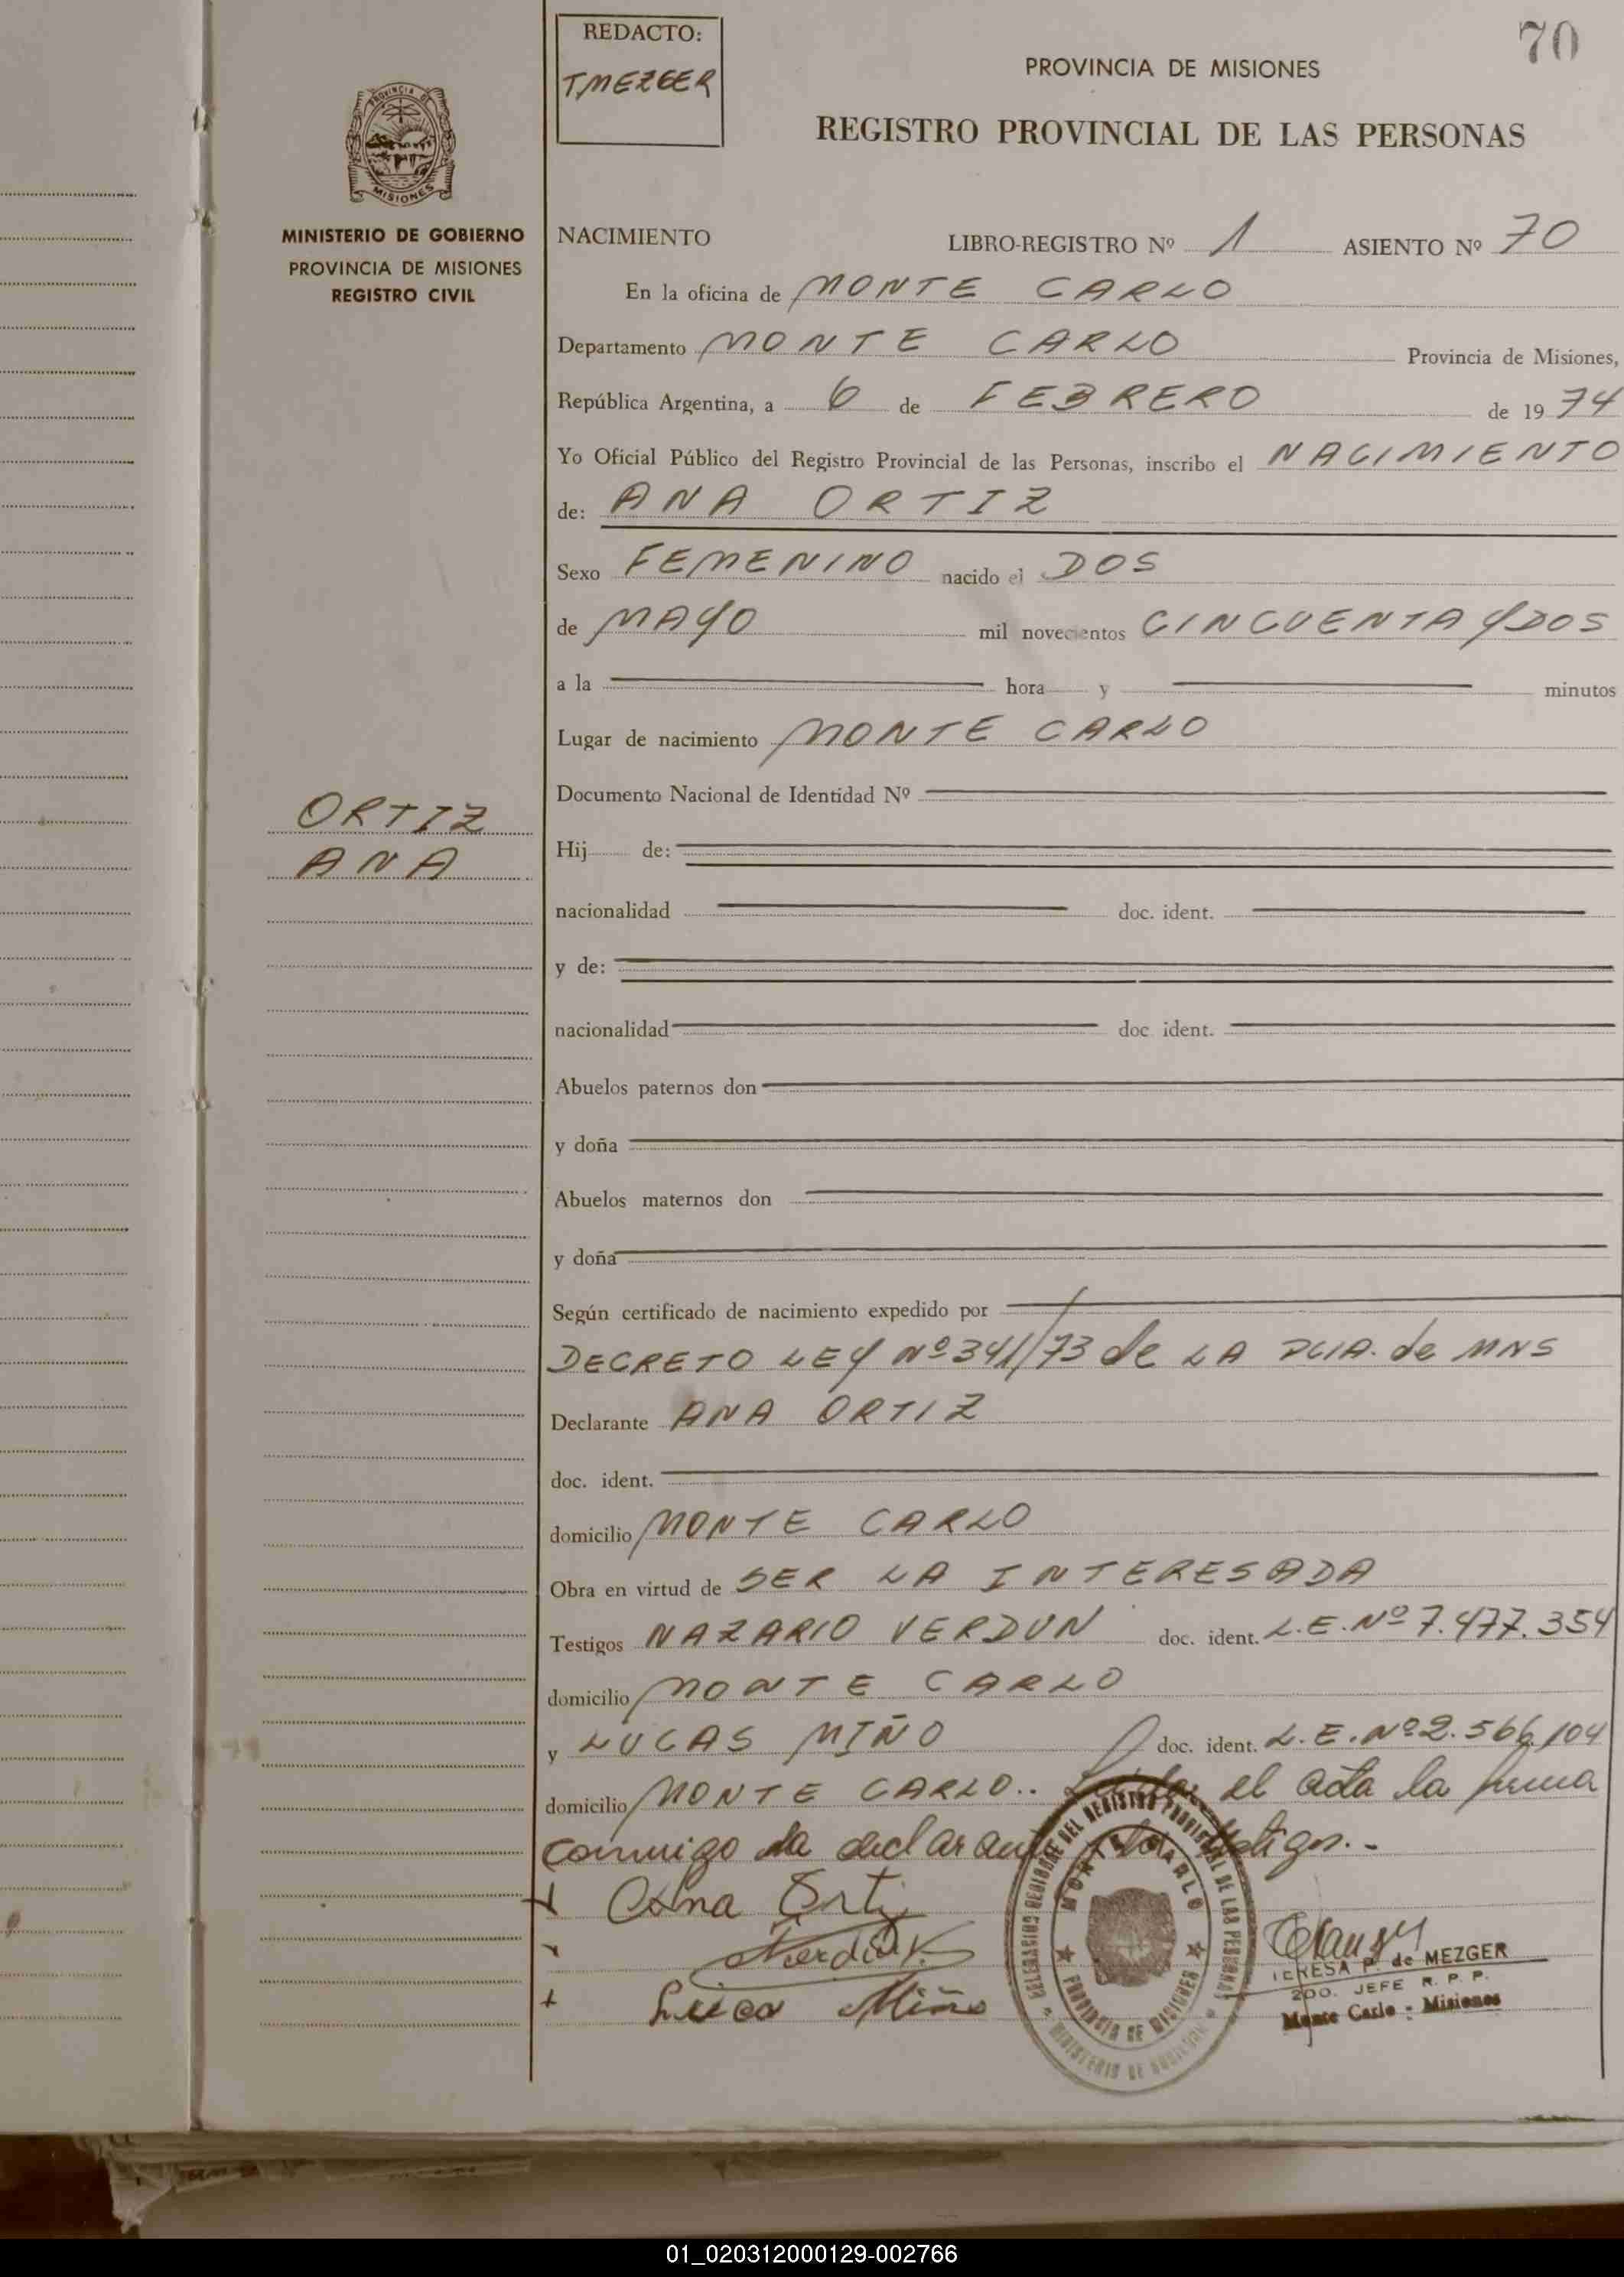 70
REDACTO:
T. MEZGER
PROVINCIA DE MISIONES
REGISTRO PROVINCIAL DE LAS PERSONAS
PROVINCIA DE
MISIONES
MINISTERIO DE GOBIERNO
PROVINCIA DE MISIONES
REGISTRO CIVIL
NACIMIENTO LIBRO-REGISTRO Nº 1 ASIENTO Nº 70
En la oficina de MONTE CARLO
Departamento MONTE CARLO Provincia de Misiones,
República Argentina, a 6 de FEBRERO de 1974
Yo Oficial Público del Registro Provincial de las Personas, inscribo el NACIMIENTO
de: ANA ORTIZ
Sexo FEMENINO nacido el DOS
de MAYO mil novecientos CINCUENTA Y DOS
a la hora y minutos
Lugar de nacimiento MONTE CARLO
Documento Nacional de Identidad Nº
ORTIZ
ANA
Hij de:
nacionalidad doc. ident.
y de:
nacionalidad doc. ident.
Abuelos paternos don
y doña
Abuelos maternos don
y doña
Según certificado de nacimiento expedido por
DECRETO LEY Nº 341/73 de LA PCIA. de MNS
Declarante ANA ORTIZ
doc. ident.
domicilio MONTE CARLO
Obra en virtud de SER LA INTERESADA
Testigos NAZARIO VERDUN doc. ident. L.E. Nº 7.477.354
domicilio MONTE CARLO
y LUCAS MIÑO doc. ident. L.E. Nº 2.566.104
domicilio MONTE CARLO.. Leida el acta la firma
conmigo la declarante y los testigos.-
Ana Ortiz
Verdun
Luca Miño
MONTE CARLO
PROVINCIA DE MISIONES
TERESA P. de MEZGER
2DO. JEFE R. P. P.
Monte Carlo - Misiones
01_020312000129-002766